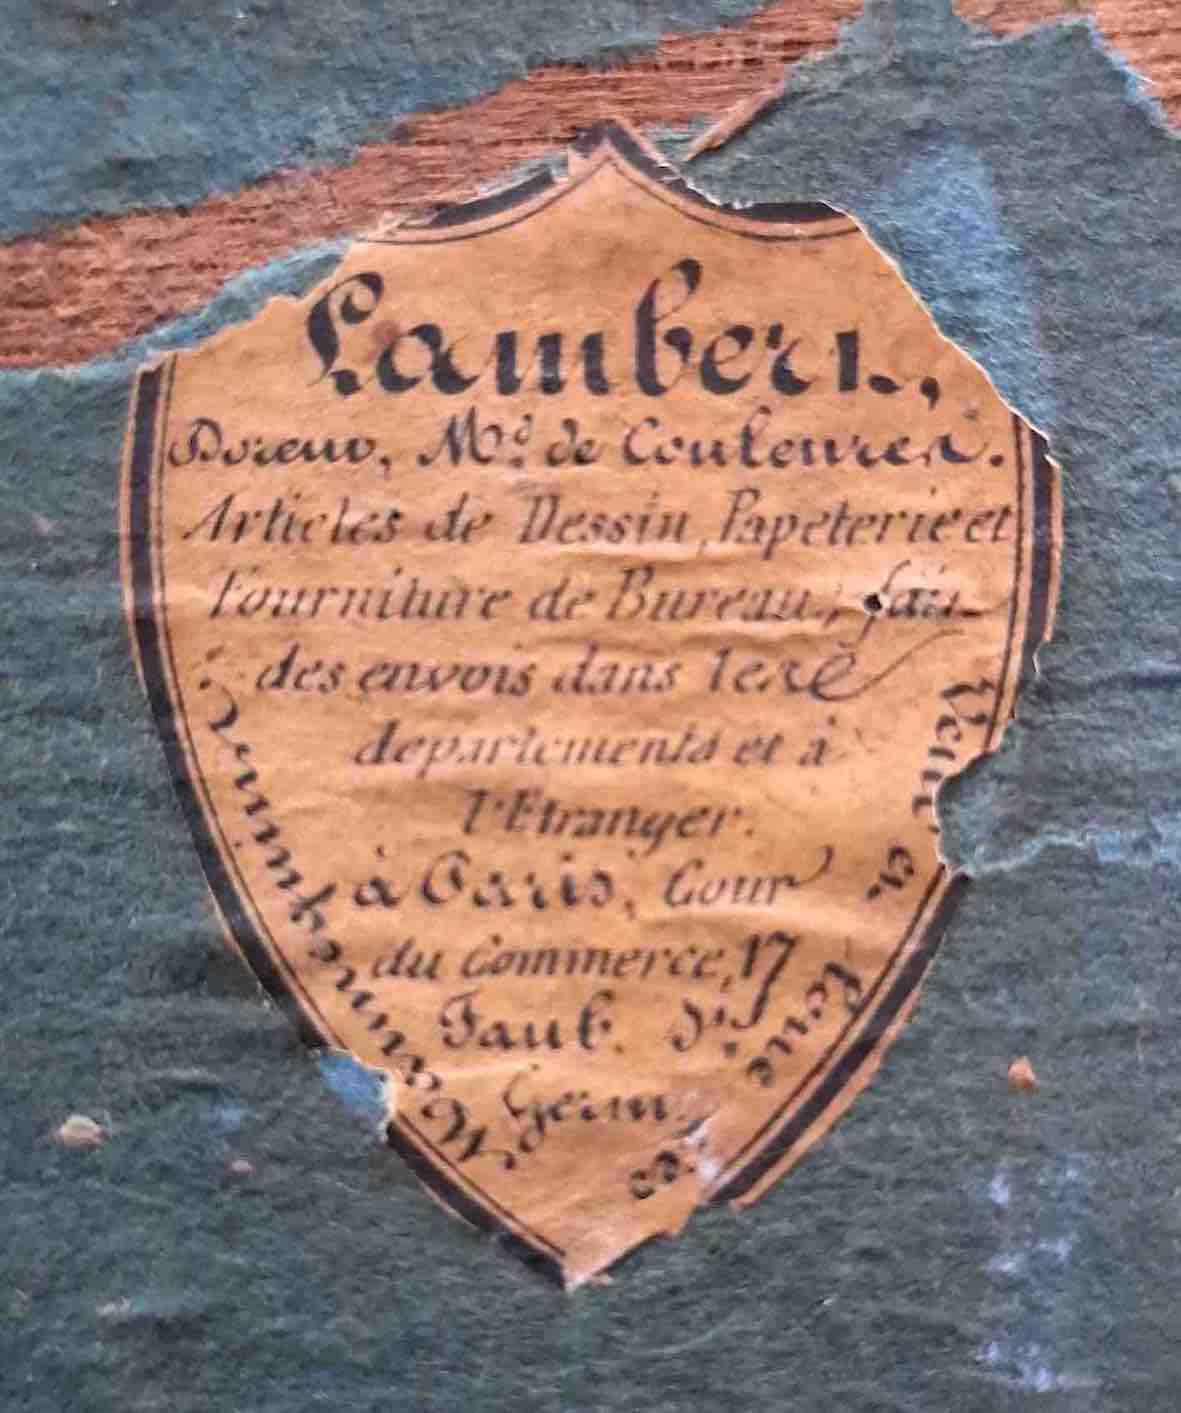 Lambert,
Doreur, Md. de Couleurs.
Articles de Dessin, Papeterie et
Fourniture de Bureau, fait
des envois dans les
departements et à
l'Etranger.
à Paris, Cour
du Commerce, 17
Faub. St.
Germ
Vend en